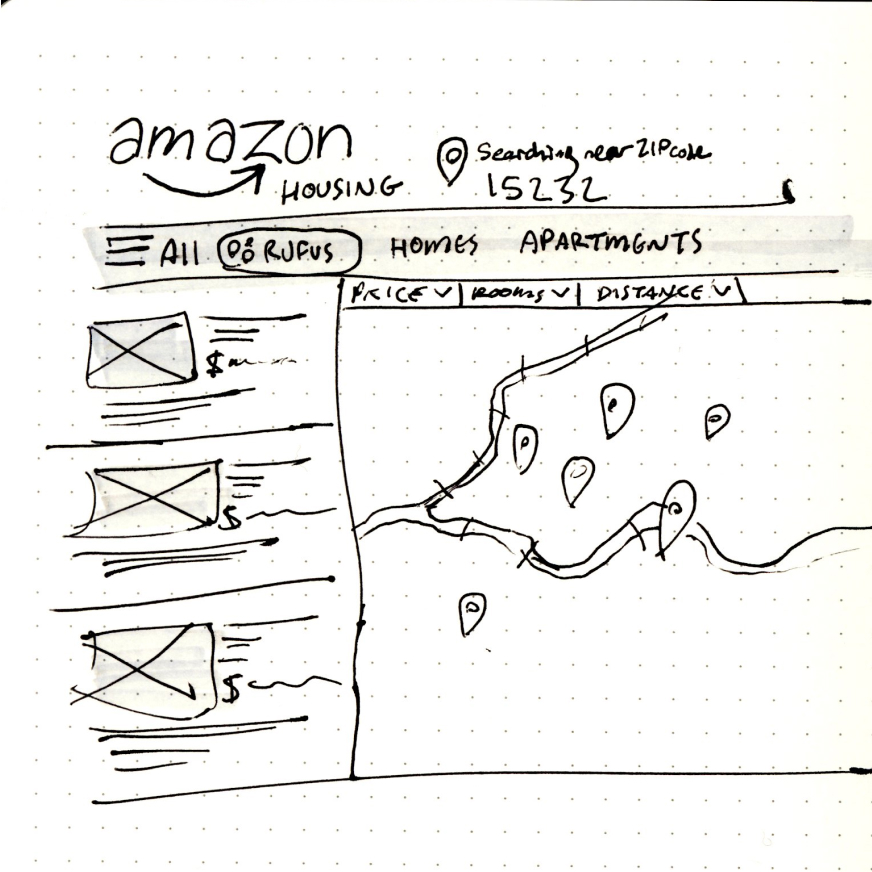 amazon
HOUSING
Searching near ZIP code
15232
All RUFUS HOMES APARTMENTS
PRICE ROOMS DISTANCE
$
$
$